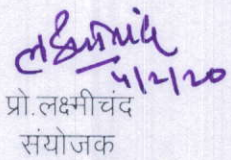 लक्ष्मीचंद
4/2/20
प्रो.लक्ष्मीचंद
संयोजक